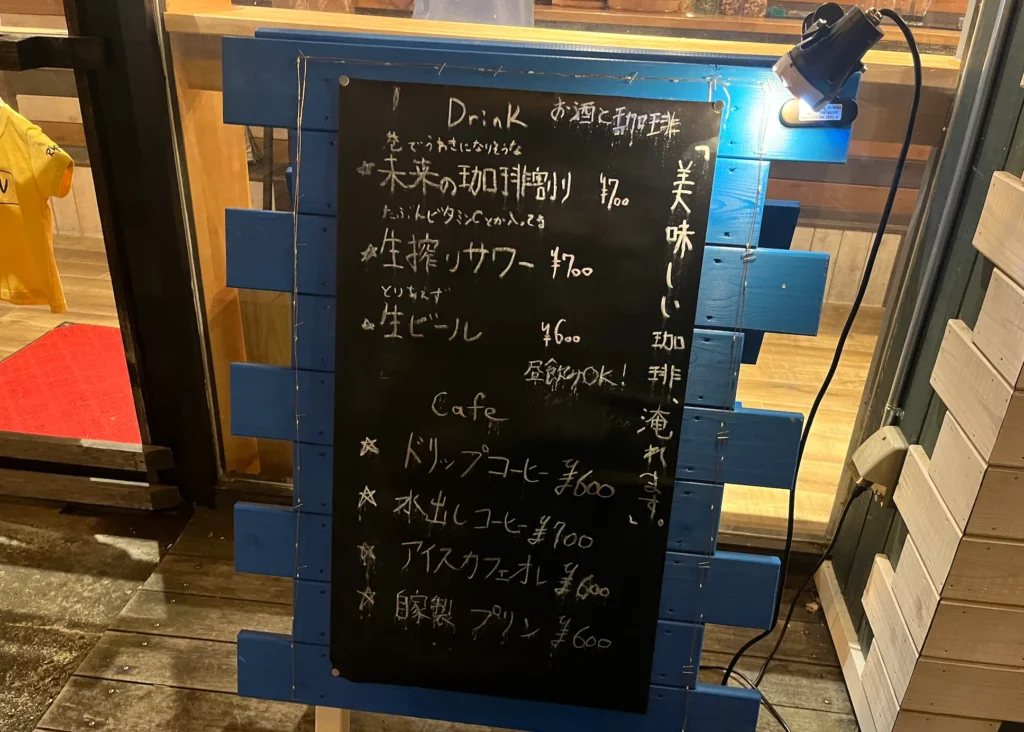 Drink お酒と珈琲
巷でうわさになりそうな
☆未来の珈琲割り ¥700
たぶんビタミンCとか入ってる
☆生搾りサワー ¥700
とりあえず
☆生ビール ¥600
昼飲みOK!
「美味しい珈琲、淹れます。」
Cafe
☆ドリップコーヒー ¥600
☆水出しコーヒー ¥700
☆アイスカフェオレ ¥600
☆自家製プリン ¥600